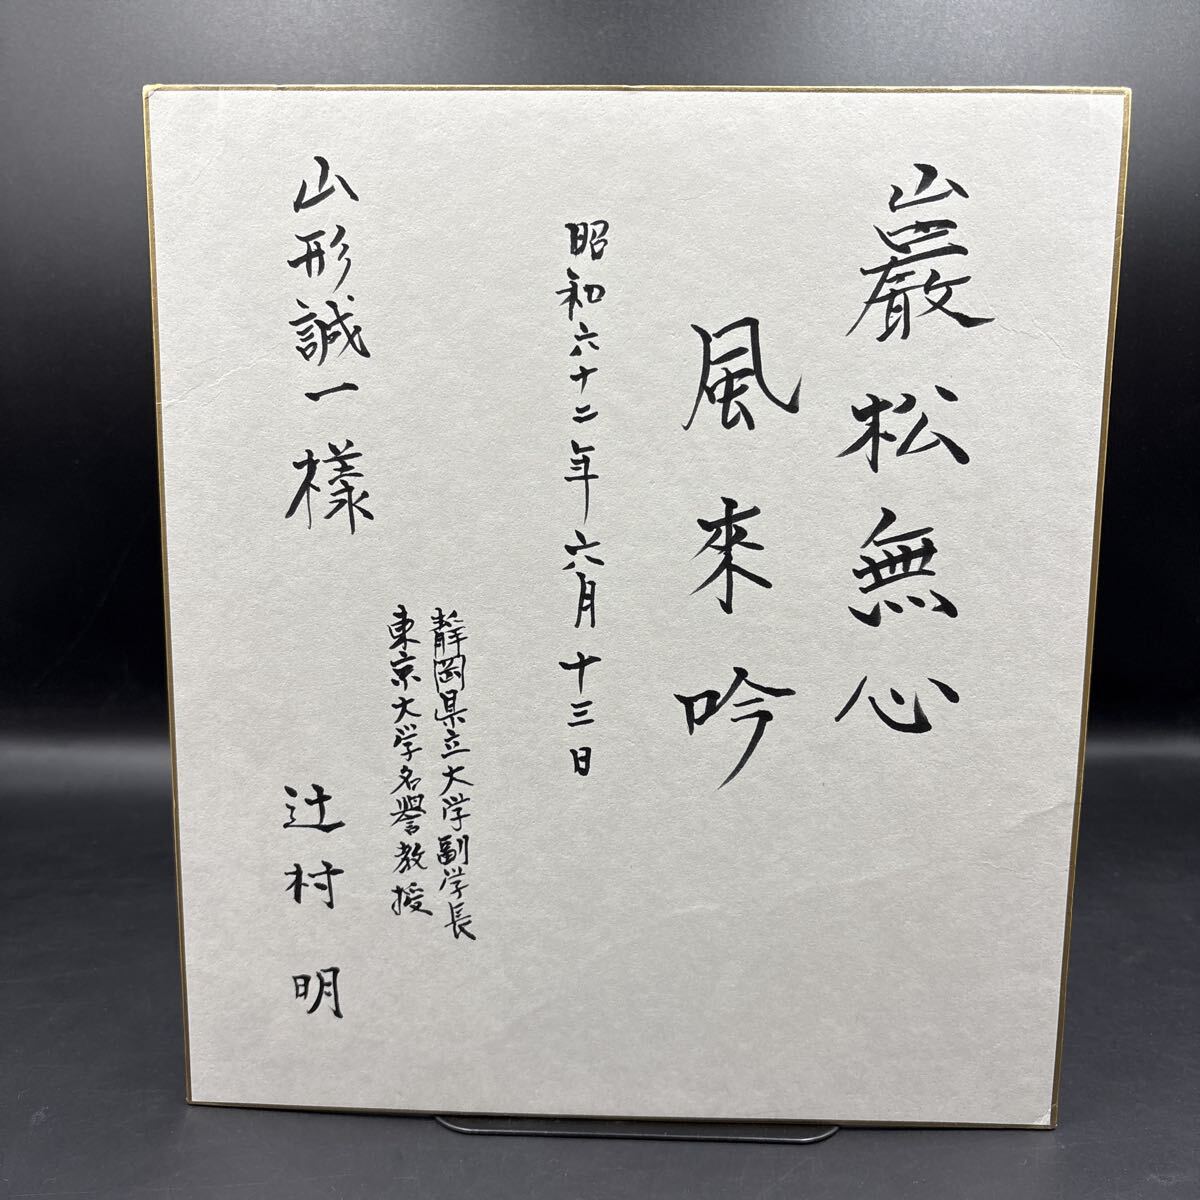 巖松無心
風來吟
昭和六十二年六月十三日
静岡県立大学副学長
東京大学名譽教授
山形誠一様
辻村明